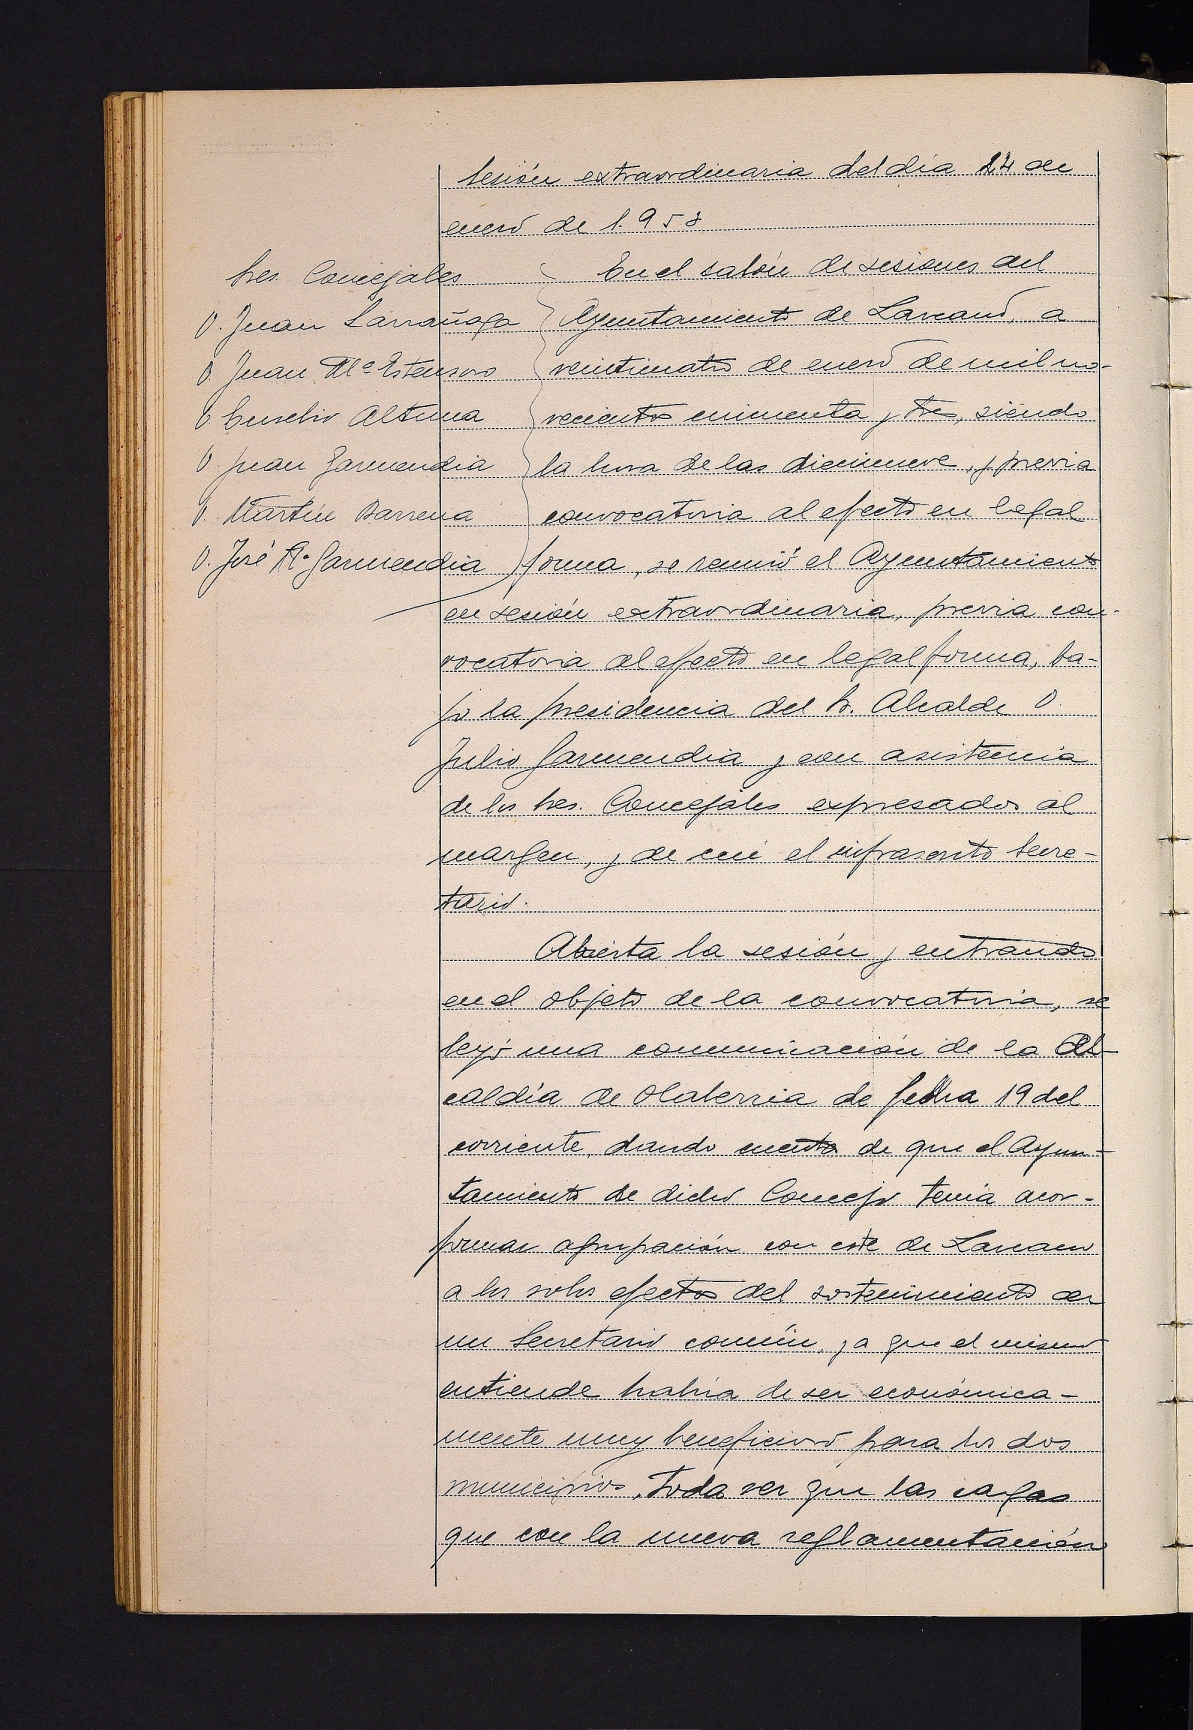 Sesión extraordinaria del día 24 de
enero de 1.953
Sres. Concejales
D. Juan Larrañaga
D. Juan Mª Estensoro
D. Eusebio Altuna
D. Juan Garmendia
D. Martín Barrena
D. José Mª Garmendia
En el salón de sesiones del
Ayuntamiento de Lazcano, a
veinticuatro de enero de mil no-
vecientos cincuenta y tres, siendo
la hora de las diecinueve, y previa
convocatoria al efecto en legal
forma, se reunió el Ayuntamiento
en sesión extraordinaria, previa con-
vocatoria al efecto en legal forma, ba-
jo la presidencia del Sr. Alcalde D.
Julio Garmendia y con asistencia
de los Sres. Concejales expresados al
margen, y de mi el infrascrito Secre-
tario.
Abierta la sesión y entrando
en el objeto de la convocatoria, se
leyó una comunicación de la Al-
caldía de Olaberria de fecha 19 del
corriente, dando cuenta de que el Ayun-
tamiento de dicho Concejo tenía acor-
formar agrupación con este de Lazcano
a los solos efectos del sostenimiento de
un Secretario común, ya que el mismo
entiende habría de ser económica-
mente muy beneficioso para los dos
municipios, toda vez que las cargas
que con la nueva reglamentación